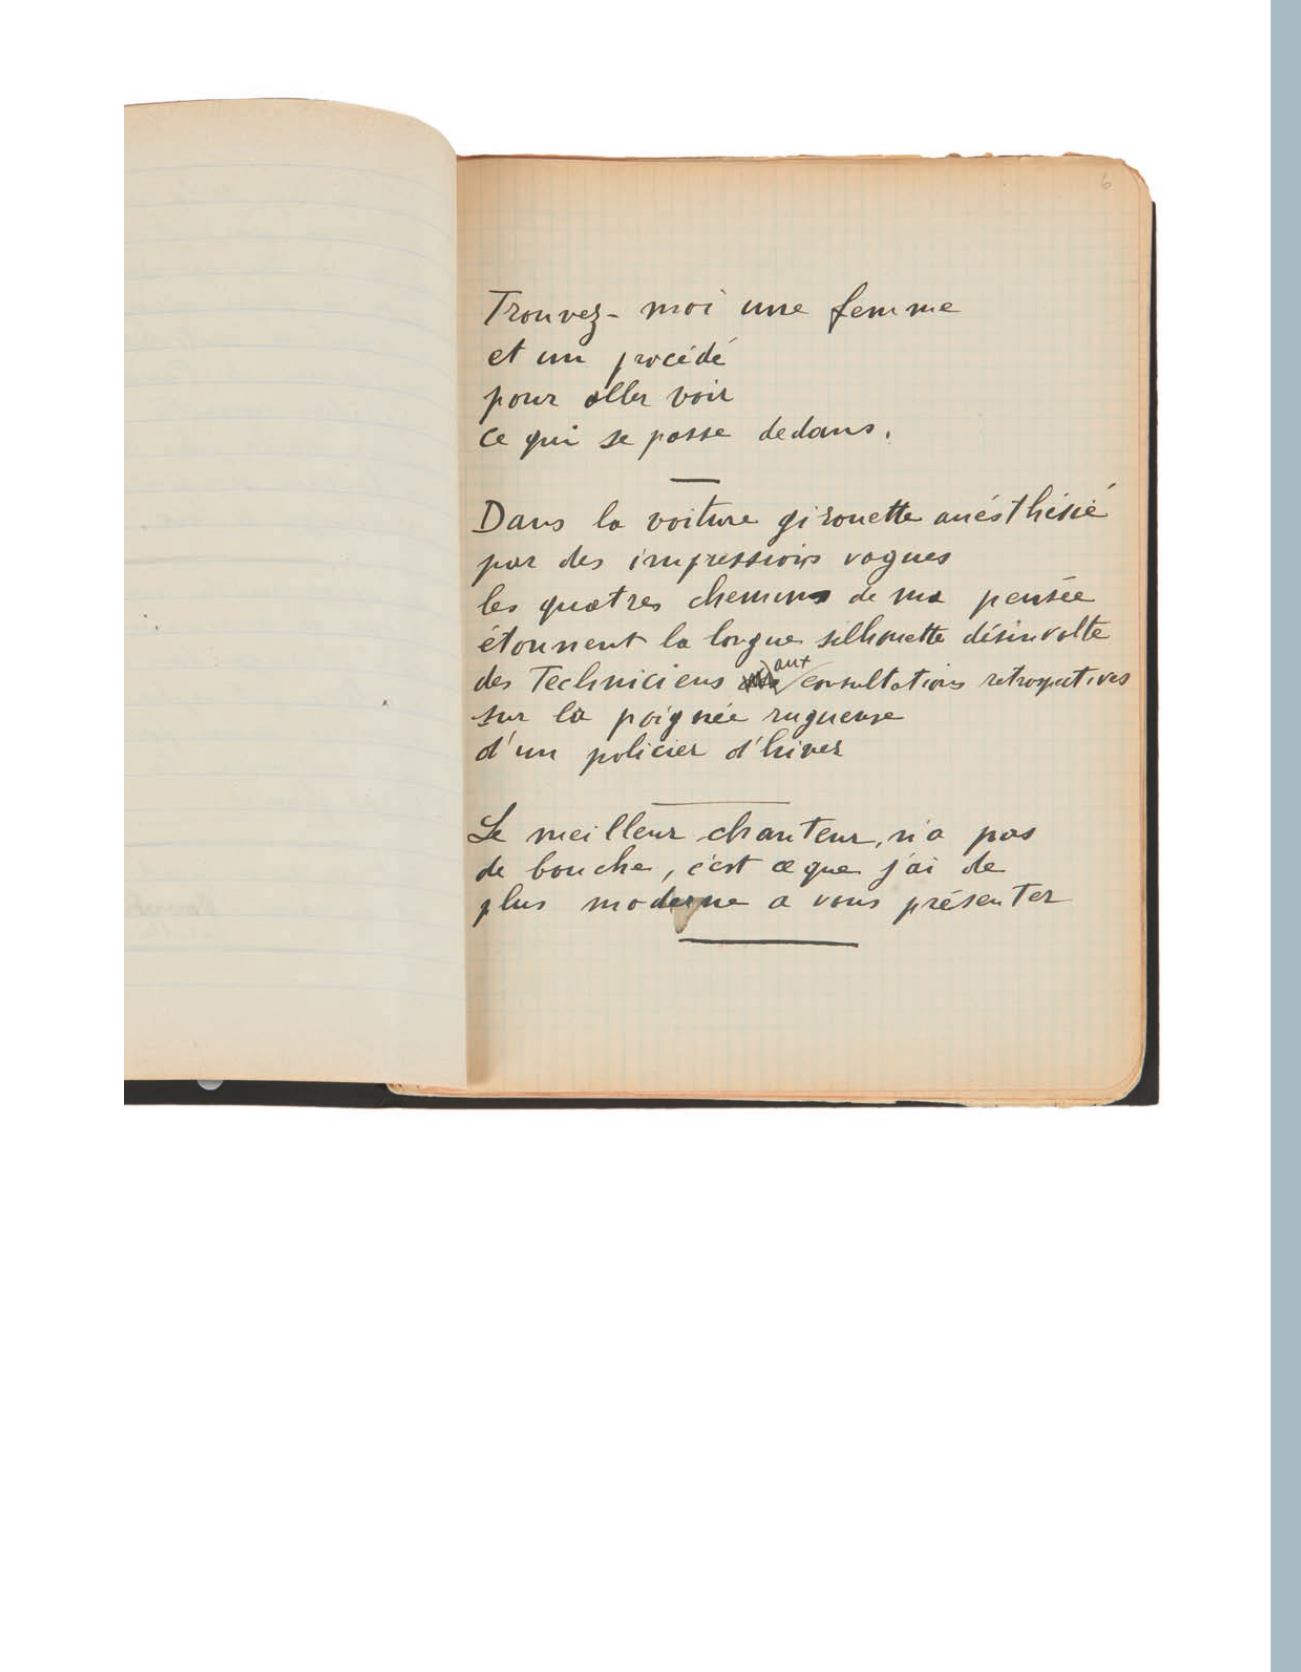 6
Trouvez-moi une femme
et un procédé
pour aller voir
ce qui se passe dedans.
Dans la voiture girouette anésthésié
par des impressions vagues
les quatres chemins de ma pensée
étonnent la longue silhouette désinvolte
des Techniciens aux consultations retrospectives
sur la poignée rugueuse
d'un policier d'hiver
Le meilleur chanteur, n'a pas
de bouche, c'est ce que j'ai de
plus moderne a vous présenter